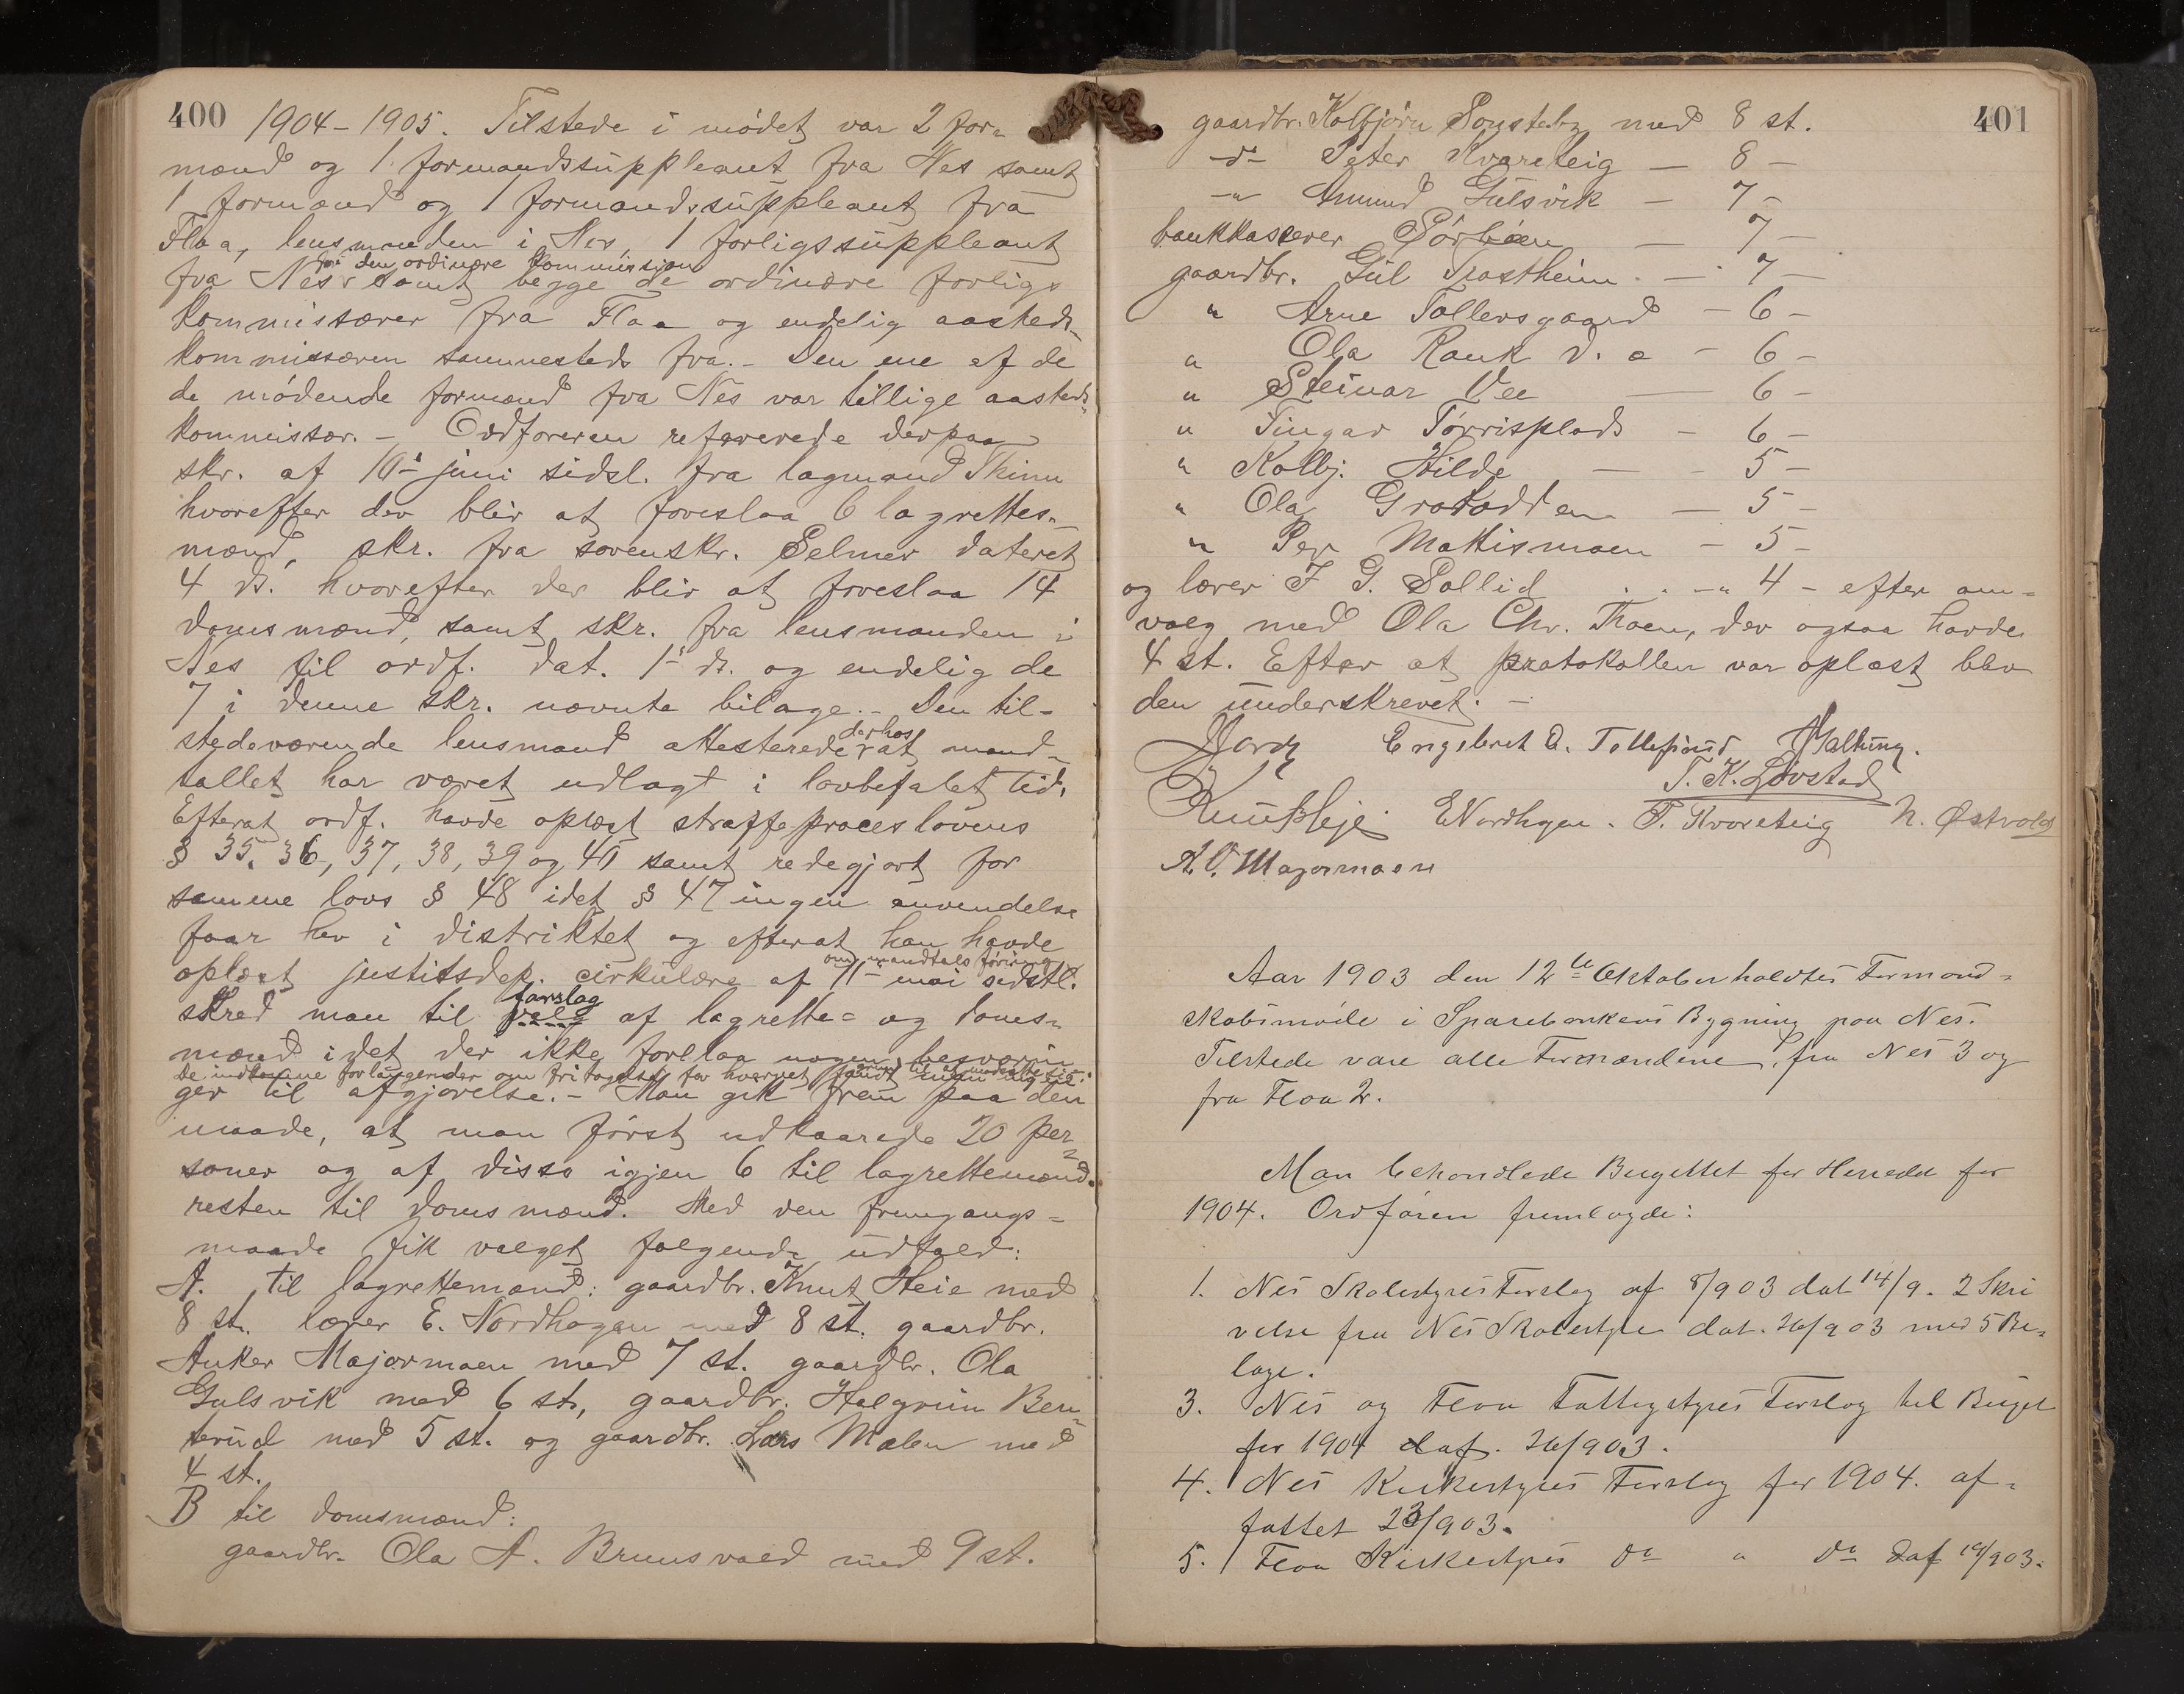 400
1904-1905. Tilstede i mödet var 2 for-
mænd og 1 formandssuppleant fra Nes samt
1 formænd og 1 formandssuppleant fra
Flaa, lensmanden i Nes, 1 forligssuppleant
for den ordinære kommission
fra Nes samt begge de ordinære forligs
kommissærer fra Flaa og endelig aasteds-
kommissæren sammesteds fra. - Den ene af de
de mödende formænd fra Nes var tillige aasteds-
kommissær. - Ordföreren refererede derpaa
skr. af 10- juni sidsl. fra lagmand Thinn
hvorefter der blir at foreslaa 6 lagrettes-
mænd, skr. fra sorenskr. Selmer dateret
4 ds. hvorefter der blir at foreslaa 14
domsmænd, samt skr. fra lensmanden i
Nes til ordf. dat. 1- ds. og endelig de
7 i denne skr. nævnte bilage. - Den til-
derhos
stedeværende lensmand attesterede at mand-
tallet har været udlagt i lovbefalet tid.
Efterat ordf. havde oplæst straffeproceslovens
§ 35, 36, 37, 38, 39 og 40 samt redegjort for
samme lovs § 48 idet § 47 ingen anvendelse
faar her i distriktet og efterat han havde
om mandtals föring
oplæst justitsdep. cirkulære af 11- mai sidstl.
forslag
skred man til valg af lagrette- og doms-
mænd idet der ikke forelaa nogen besværin
De indkomne forlangender om fritagelse for hvervet fandt man ingen
ger til afgjörelse. - Man gik frem paa den
maade, at man först udkaarede 20 per-
soner og af disse igjen 6 til lagrettemænd.
resten til domsmænd. Med den fremgangs-
maade fik valget fölgende udfald:
A. til lagrettemænd: gaardbr. Knut Heie med
8 st. lærer E. Nordhagen med 8 st. gaardbr.
Anker Majormoen med 7 st. gaardbr. Ola
Gulsvik med 6 st, gaardbr. Halgrim Ben-
terud med 5 st. og gaardbr. Lars Mælen med
4 st.
B til domsmænd:
gaardbr. Ola A. Bruusvald med 9 st.
401
gaardbr. Kolbjörn Sönsteby med 8 st.
-d- Peter Kvareteig - 8 -
-"- Amund Gulsvik - 7 -
bankkasserer Sörbön - 7 -
gaardbr. Gul Trostheim - 7 -
" Arne Tollersgaard - 6 -
" Ola Rauk d. a - 6 -
" Steinar Vee - 6 -
" Tingar Törrisplads - 6 -
" Kolbj. Hilde - 5 -
" Ola Grotodden - 5 -
" Per Mattismoen - 5 -
og lærer I. G. Sollid . . -"- 4 - efter om-
valg med Ola Chr. Thoen, der ogsaa havde
4 st. Efter at protokollen var oplæst blev
den underskrevet. -
Engebret O. Tollefsrud
T. K. Lövstad
Knut Heje E Nordhgen. P. Kvareteig N. Østvold
A. O. Majormoen
Aar 1903 den 12te Oktober holdtes Formand-
skabsmöde i Sparebankens Bygning paa Nes.
Tilstede vare alle Formændene, fra Nes 3 og
fra Flaa 2.
Man behandlede Bugettet for Herredet for
1904. Ordfören fremlagde:
1. Nes Skolestyres Forslag af 8/903 dat 14/9. 2 Skri
velse fra Nes Skolestyre dat. 26/903 med 5 Bi-
lage.
3. Nes og Flaa Fattigstyres Forslag til Buget
for 1904 daf. 26/903.
4. Nes Kirkestyres Forslag for 1904. af-
fattet 23/903.
5. Flaa Kirkestyres do " do daf 19/903.